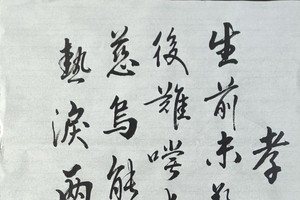 孝
生前未
後難嘗
慈烏能
熱淚兩